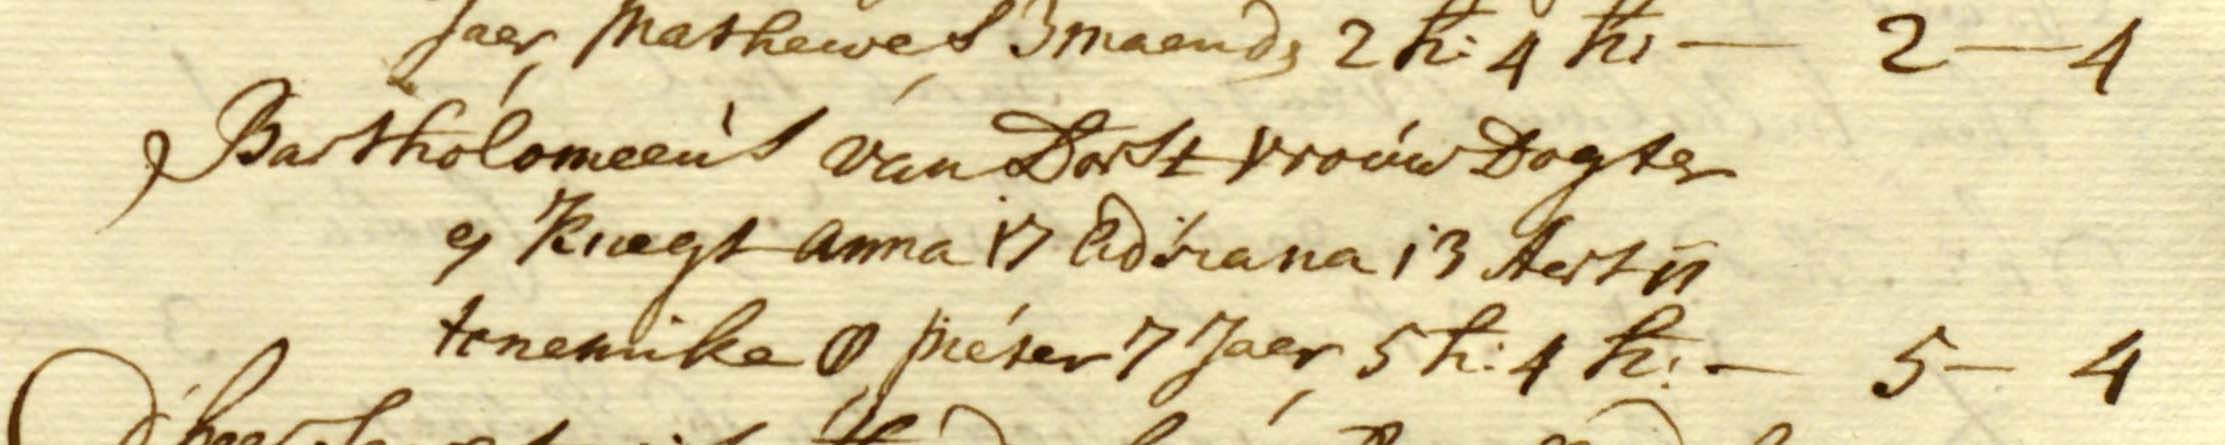 Jaer, Mathewes 3 maends 2 h: 4 k: — 2 — 4
Bartholomeeus van Dorst vrouw Dogter
en Knegt Anna 17 Adriana 13 Aert 11
Jenemike 9 pieter 7 Jaer, 5 h: 4 k: — 5 — 4